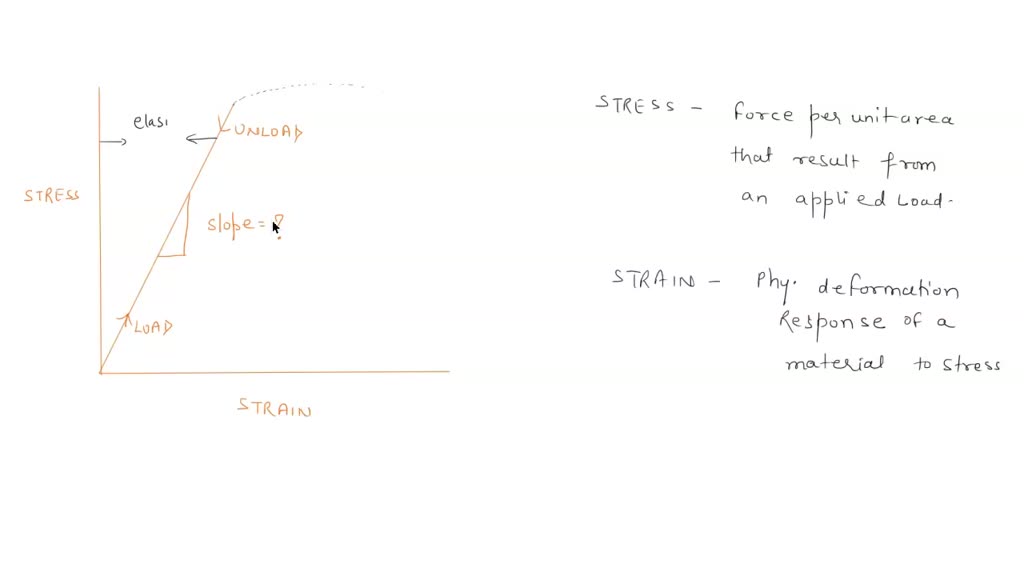 elasi
UNLOAD
STRESS
slope = ?
LOAD
STRAIN
STRESS - force per unit area
that result from
an applied Load.
STRAIN - Phy. deformation
Response of a
material to stress